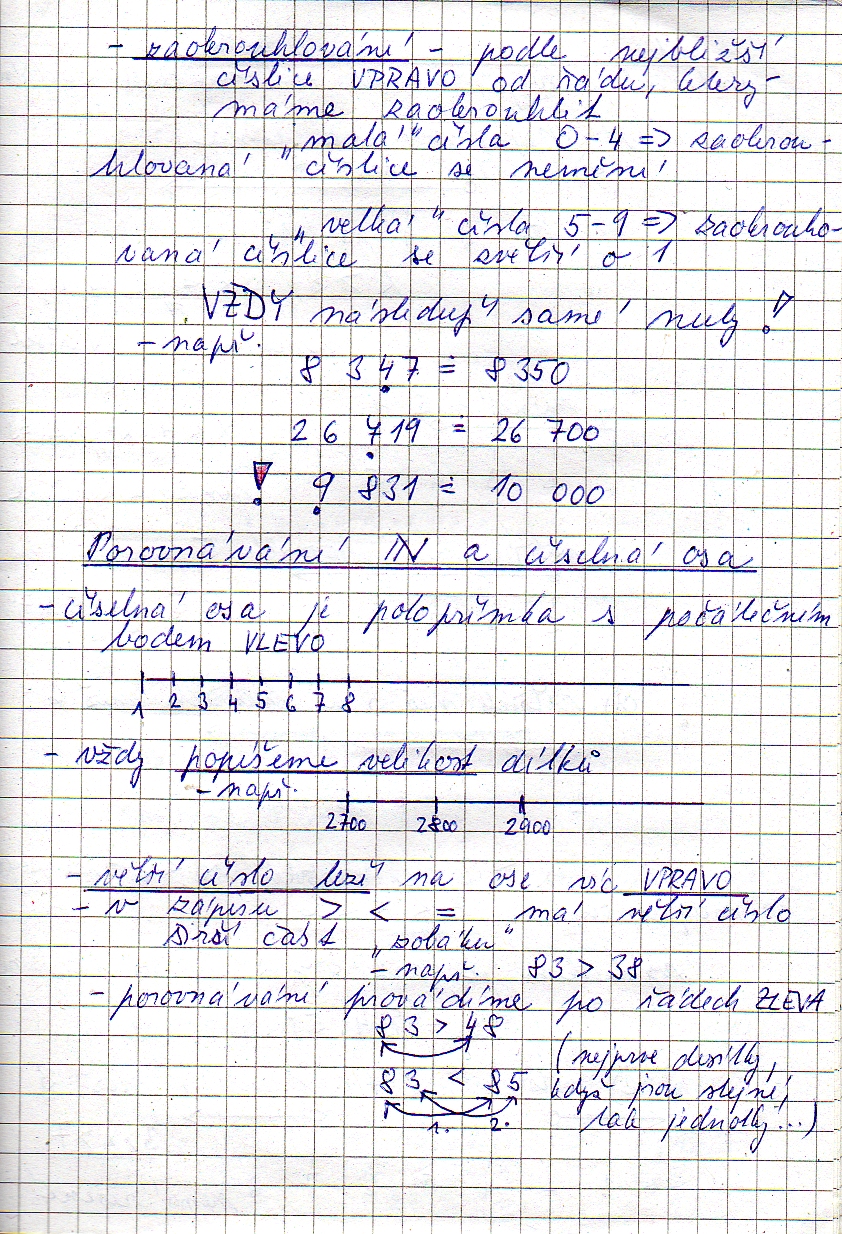 - zaokrouhlování - podle nejbližší
číslice VPRAVO od řádu, který
máme zaokrouhlit
„malá“ čísla 0-4 => zaokrou-
hlovaná číslice se nemění
„velká“ čísla 5-9 => zaokrouho-
vaná číslice se zvětší o 1
VŽDY následují samé nuly!
- např.
8 347 ≐ 8350
26 719 ≐ 26 700
! 9 831 ≐ 10 000
Porovnávání ℕ a číselná osa
- číselná osa je polopřímka s počátečním
bodem VLEVO
1 2 3 4 5 6 7 8
- vždy popíšeme velikost dílků
- např.
2700 2800 2900
- větší číslo leží na ose víc VPRAVO
- v zápisu > < = má větší číslo
širší část „zobáku“
- např. 83 > 38
- porovnávání provádíme po řádech ZLEVA
83 > 48
(nejprve desítky,
83 < 85 když jsou stejné,
1. 2. tak jednotky...)